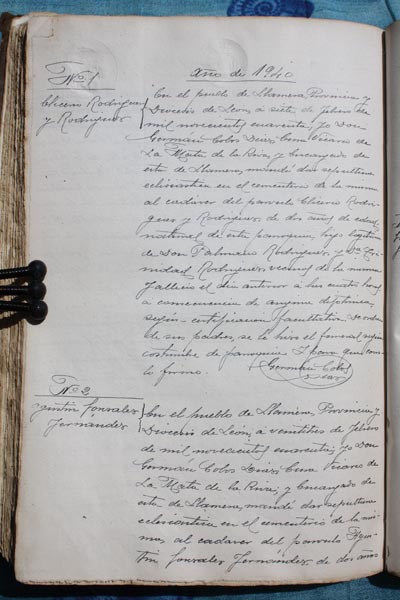 Año de 1940
Nº 1
Eliceo Rodriguez
y Rodriguez
En el pueblo de Llamera, Provincia y
Diocesis de León, a siete de Febrero de
mil novecientos cuarenta; yo Don
Germán Cobos Diaz, Cura Ecario de
La Mata de la Riva, y Encargado de
este de Llamera, mandé dar sepultura
eclesiastica en el cementerio de la misma
al cadaver del parvulo Eliceo Rodri-
guez y Rodriguez, de dos años de edad,
natural de esta parroquia, hijo legitimo
de Don Rodriguez y Dª Tri-
nidad Rodriguez, vecinos de la misma
fallecio el dia anterior a las cuatro horas
a consecuencia de angina difterica,
según certificación facultativa. De orden
de sus padres, se le hizo el funeral según
costumbre de parroquia. Y para que conste
lo firmo.
Germán Cobos
Diaz
Nº 2
Agustin Gonzalez
Fernandez
En el pueblo de Llamera, Provincia y
Diocesis de León, a veintitres de Febrero
de mil novecientos cuarenta; yo Don
Germán Cobos Diaz, Cura Ecario de
La Mata de la Riva, y Encargado de
este de Llamera, mandé dar sepultura
eclesiastica en el cementerio de la mis-
ma, al cadaver del parvulo Agus-
tin Gonzalez Fernández, de dos años